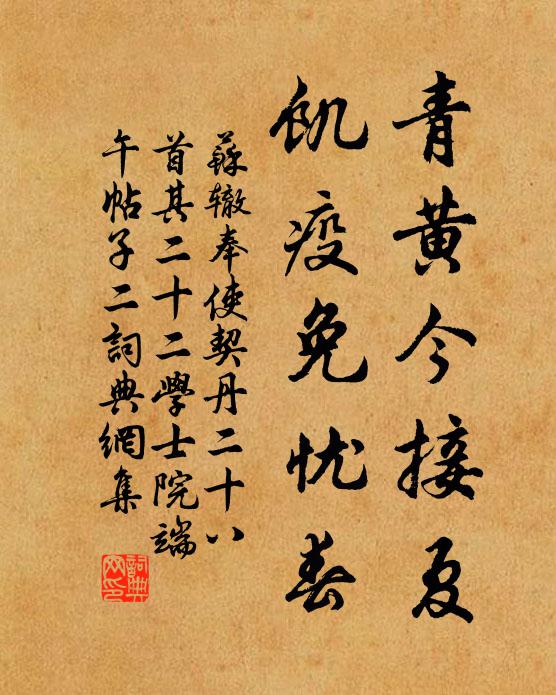 青黄今接夏
飢疫免忧春
蘇辙奉使契丹二十八
首其二十二學士院端
午帖子二詞典網集
詞典网印